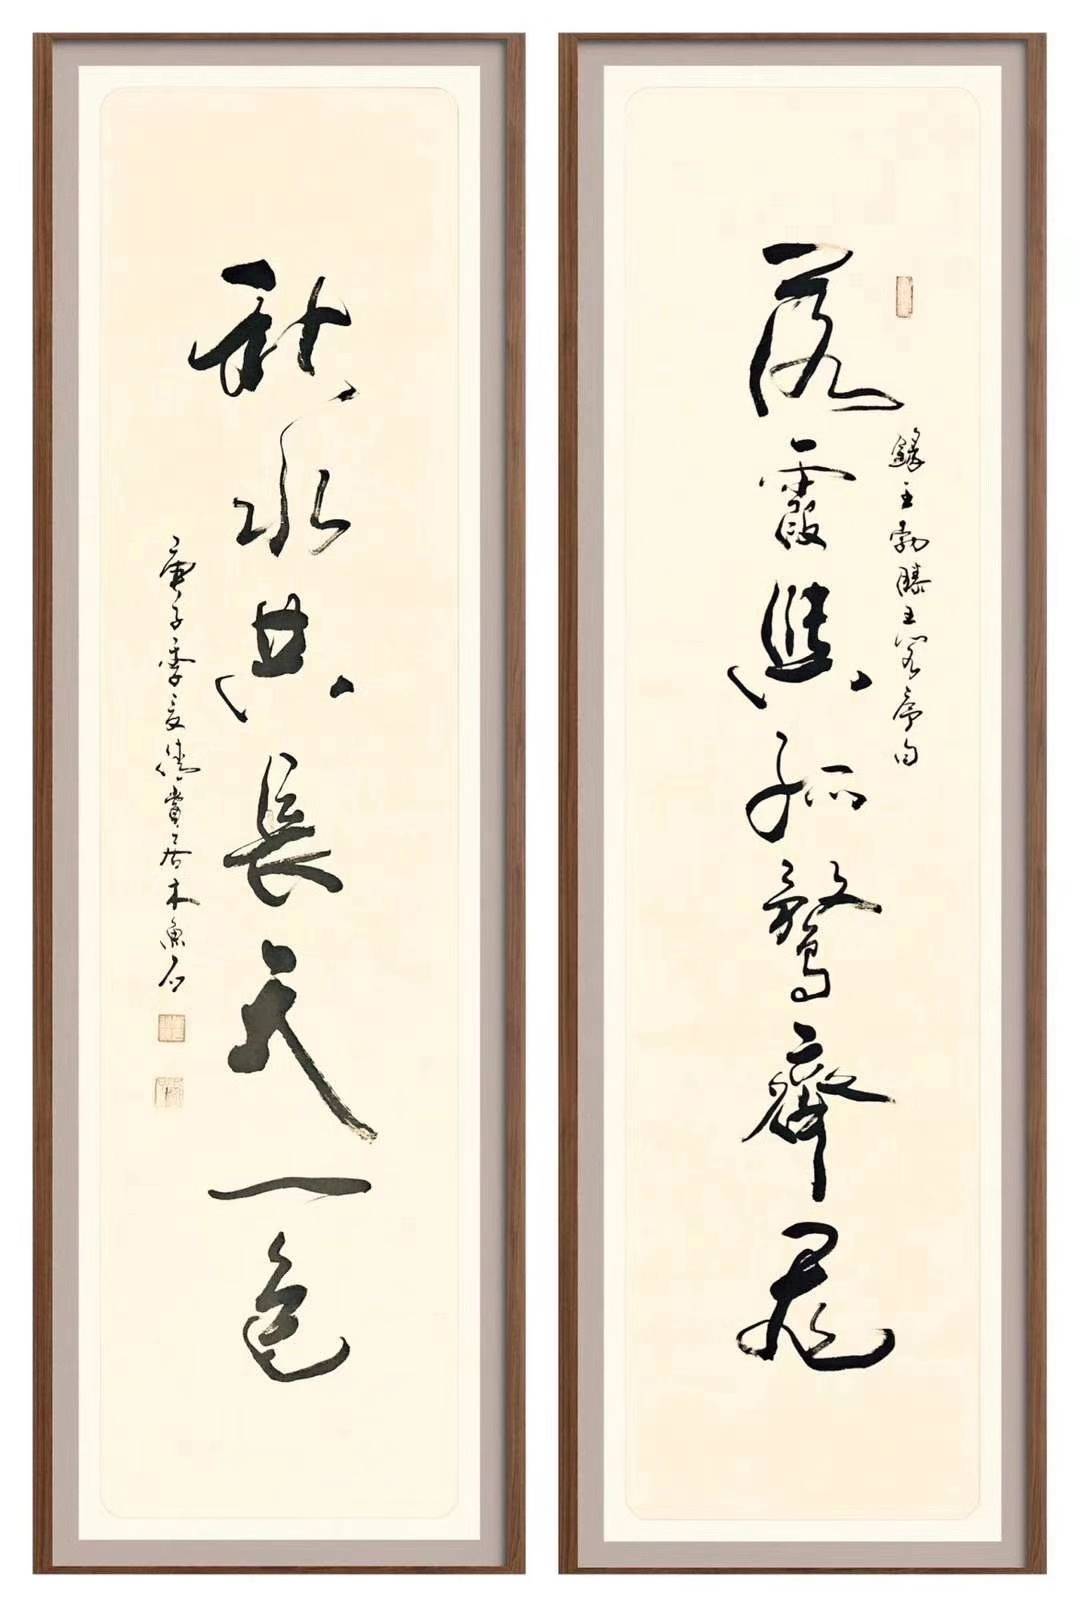 錄王勃滕王閣序句
落霞與孤鶩齊飛
秋水共長天一色
庚子季夏賞居木魚石